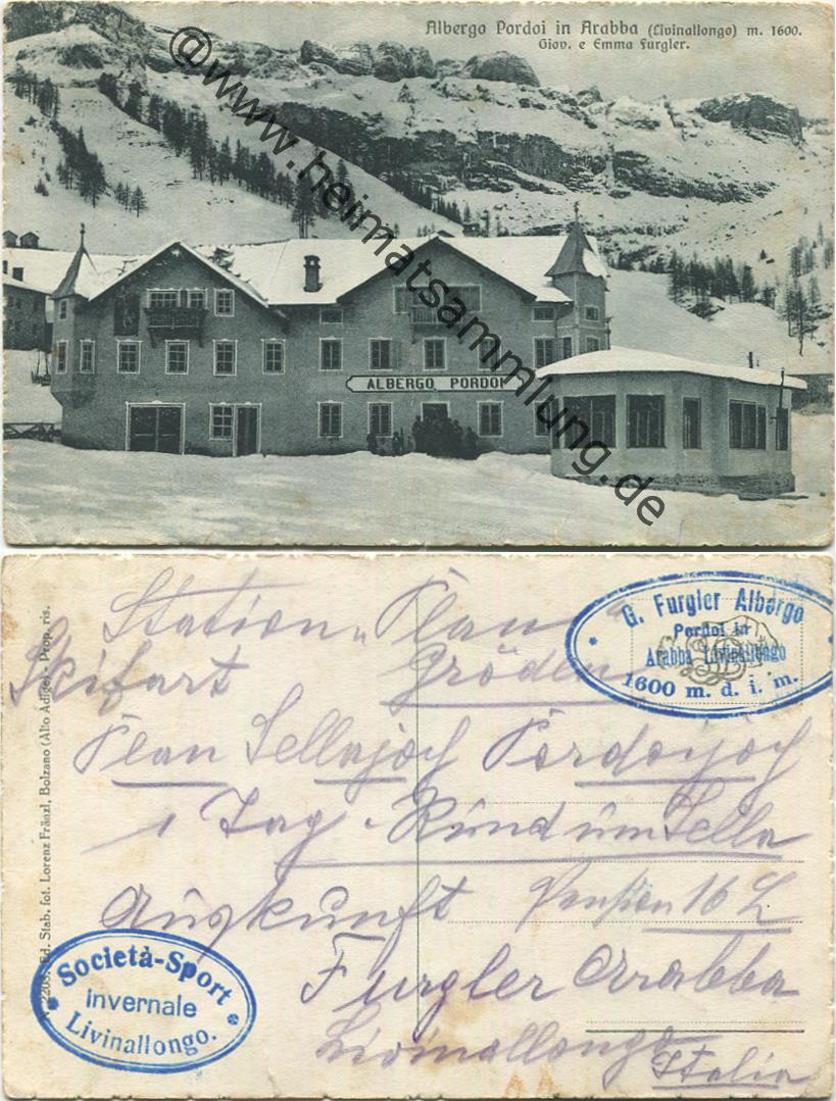 Albergo Pordoi in Arabba (Livinallongo) m. 1600.
Giov. e Emma Furgler.
@www.heimatsammlung.de
ALBERGO PORDOI
G. Furgler Albergo
Pordoi in
Arabba Livinallongo
1600 m. d. i. m.
Station „Plan
Skifart Gröden
Plan Sellajoch Pordoijoch
1 Tag. Rund um Sella
Auskunft Pension 16 L
Furgler Arabba
Livinallongo
Italia
Società-Sport
invernale
Livinallongo.
Ed. Stab. fot. Lorenz Fränzl, Bolzano (Alto Adige). Prop. ris.